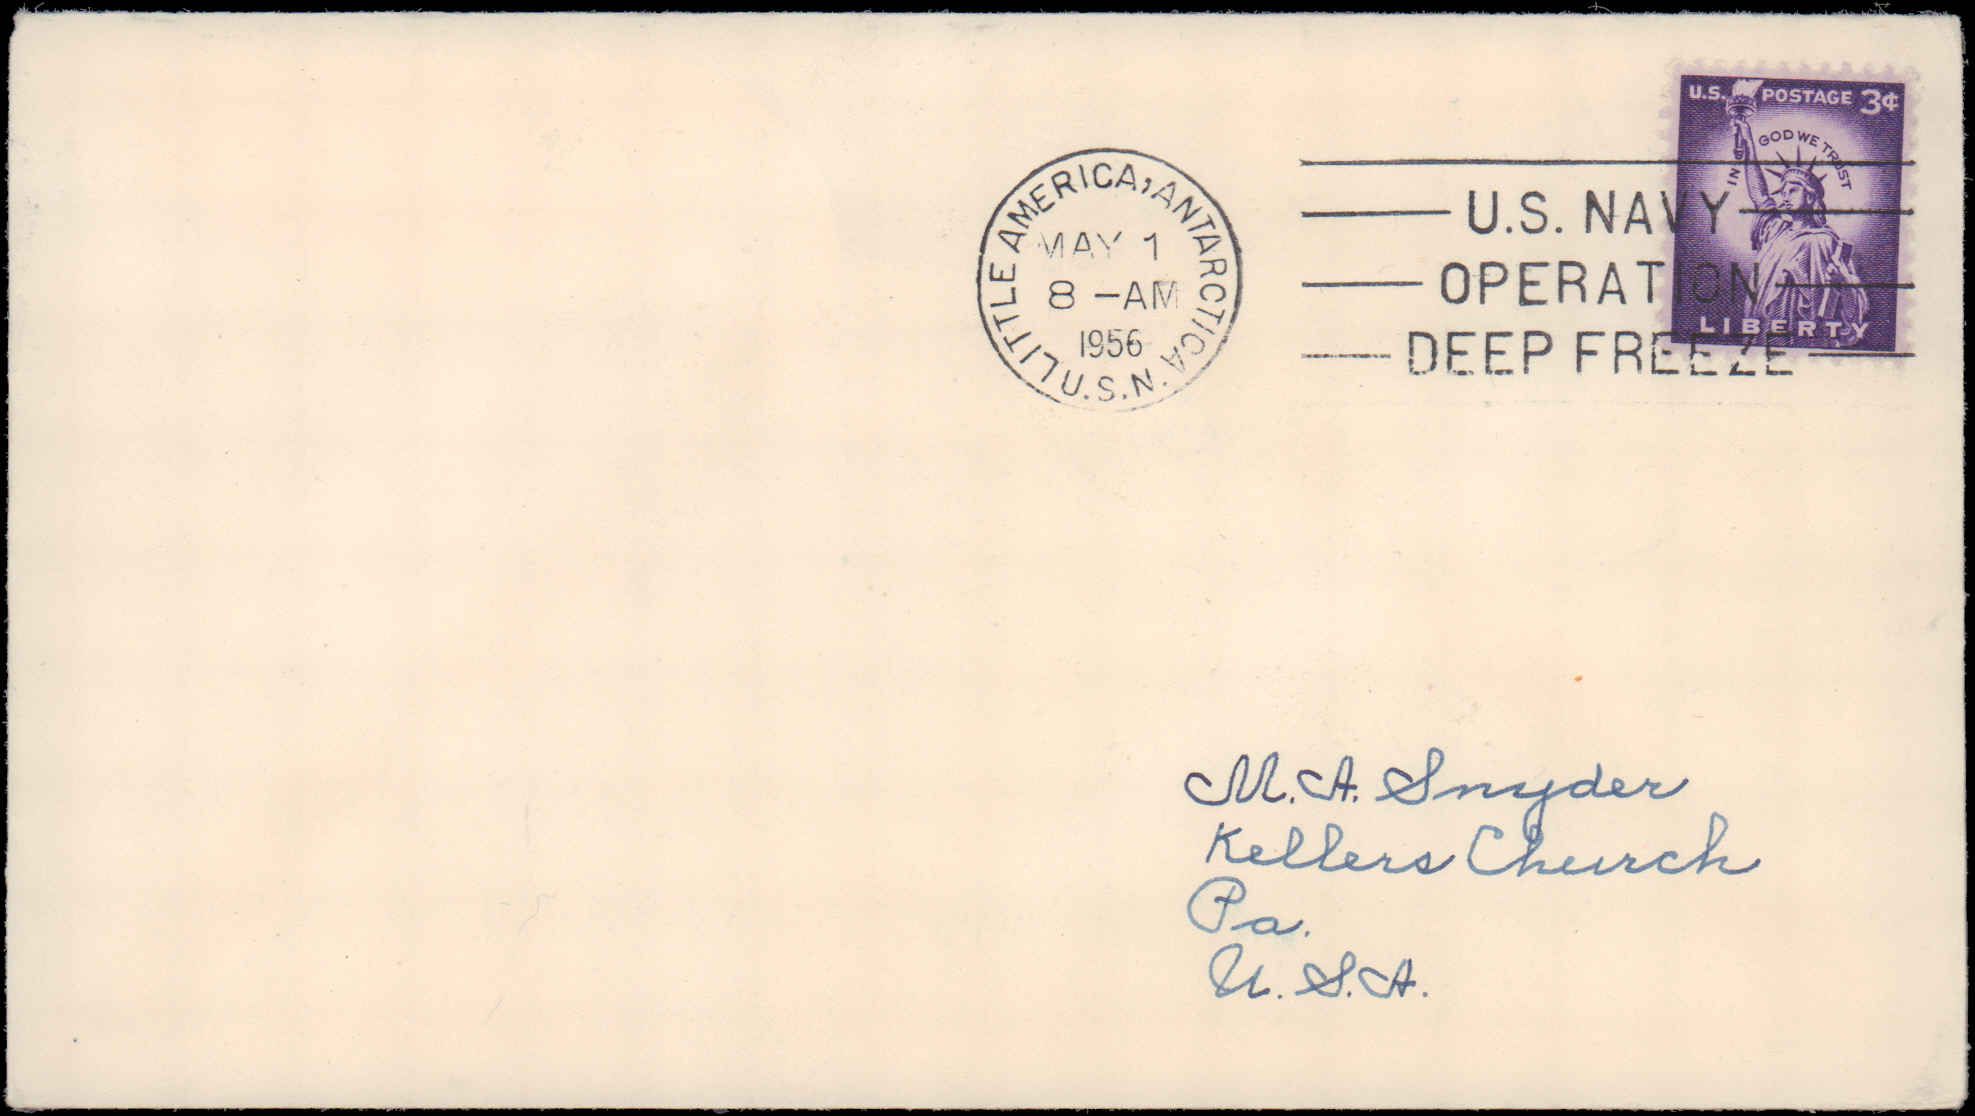 U.S. POSTAGE 3¢
IN GOD WE TRUST
LIBERTY
LITTLE AMERICA, ANTARCTICA U.S.N.
MAY 1
8 -AM
1956
U.S. NAVY
OPERATION
DEEP FREEZE
M. A. Snyder
Kellers Church
Pa.
U. S. A.